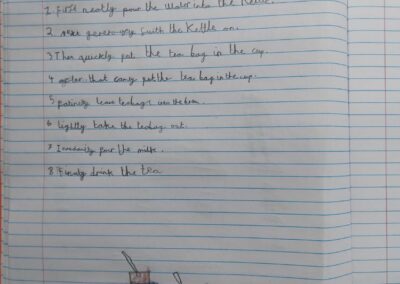 1. First neatly pour the water into the kettle.
2. next generously swith the Kettle on.
3 Then quickly put the tea bag in the cup.
4 after that put the tea bag in the cup.
5 patincly leave teabag
6 lightly take the teabag out.
7 pour the milk.
8 Finaly drink the tea